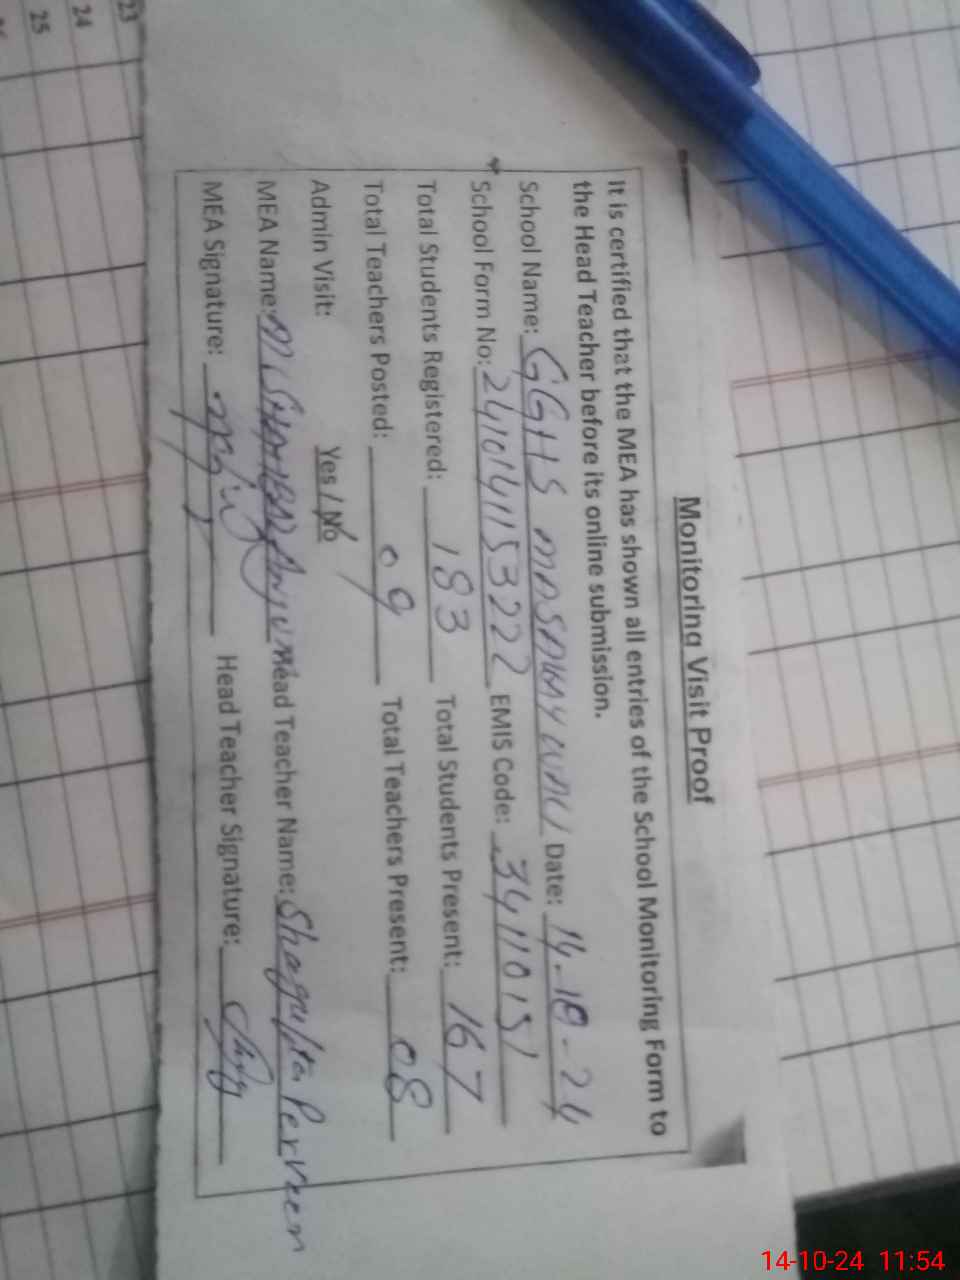 Monitoring Visit Proof
It is certified that the MEA has shown all entries of the School Monitoring Form to
the Head Teacher before its online submission.
School Name: GGHS Date: 14-10-24
School Form No: 241014115322 EMIS Code: 34110151
Total Students Registered: 183 Total Students Present: 167
Total Teachers Posted: 09 Total Teachers Present: 08
Admin Visit: Yes / No
MEA Name: Anjum Head Teacher Name: Shagufta Perveen
MEA Signature: Head Teacher Signature:
23
24
25
14-10-24 11:54